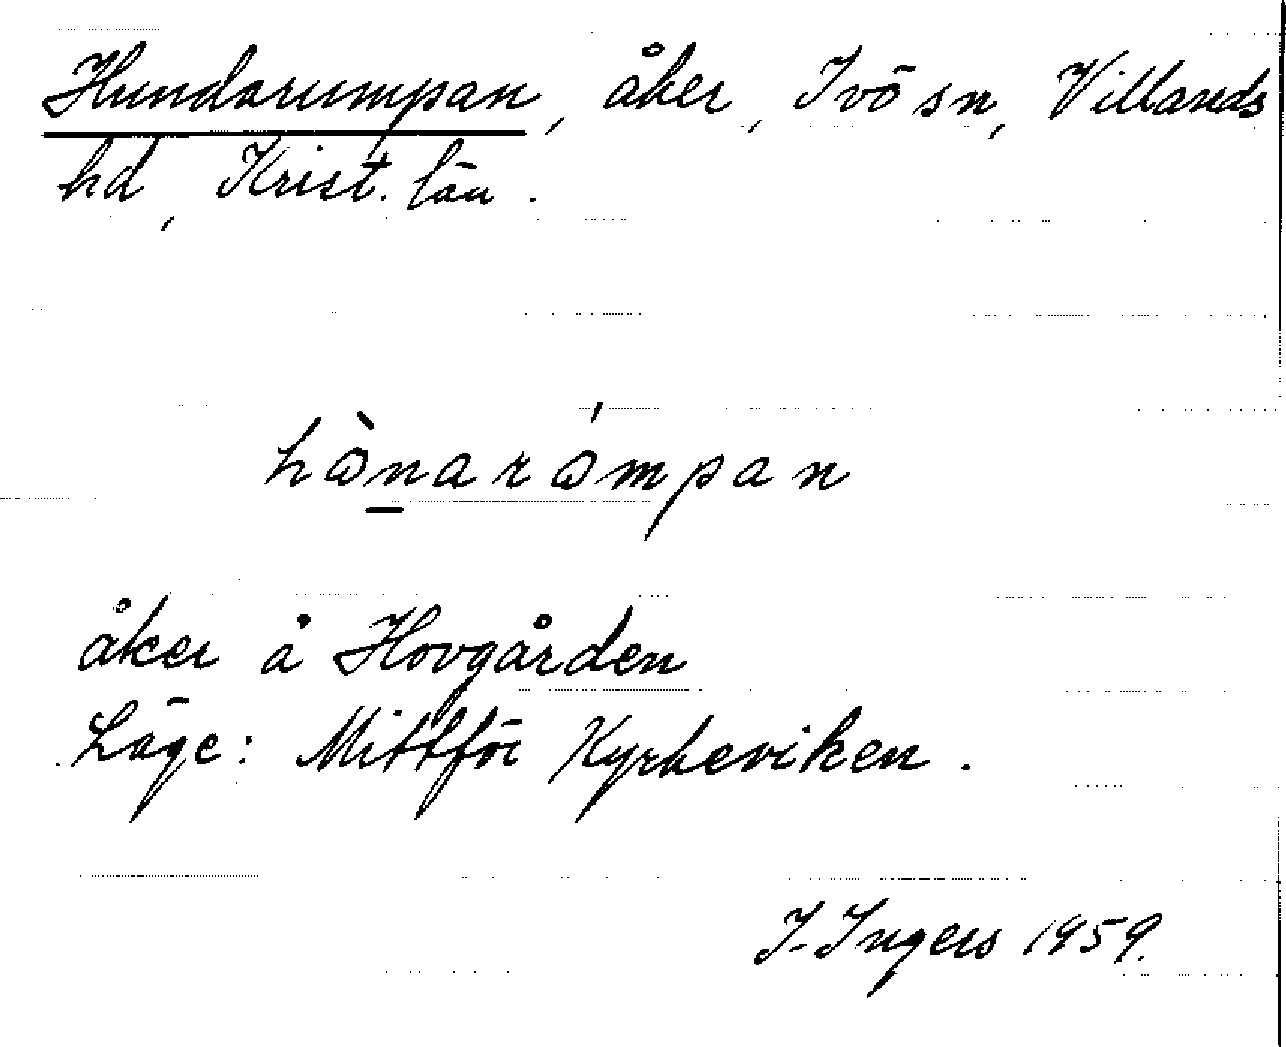 Hundarumpan, åker, Ivö sn, Villands
hd, Krist. län.
hònarómpan
åker å Hovgården
Läge: Mittför Kyrkeviken.
I. Ingers 1959.